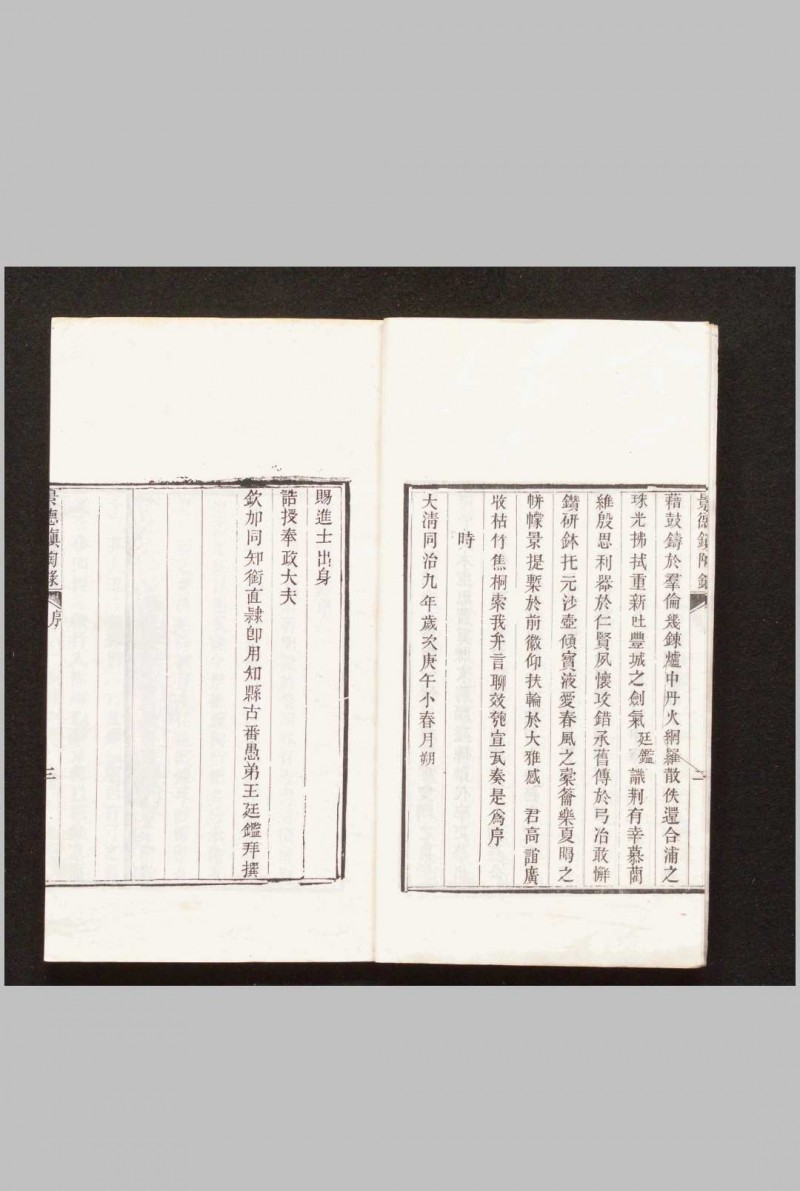 景德鎮陶錄
二
藉鼓鑄於羣倫幾鍊爐中丹火網羅散佚還合浦之
珠光拂拭重新吐豐城之劍氣廷鑑識荆有幸慕藺
維殷思利器於仁賢夙懷攻錯承舊傳於弓冶敢懈
鑽研鉢托元沙壺傾寶液愛春風之橐籥樂夏日之
帡幪景提槧於前徽仰扶輪於大雅感 君高誼廣
收枯竹焦桐索我弁言聊效匏宣瓦奏是爲序
時
大淸同治九年歲次庚午小春月朔
賜進士出身
誥授奉政大夫
欽加同知銜直隷卽用知縣古番愚弟王廷鑑拜撰
景德鎭陶錄
序
三